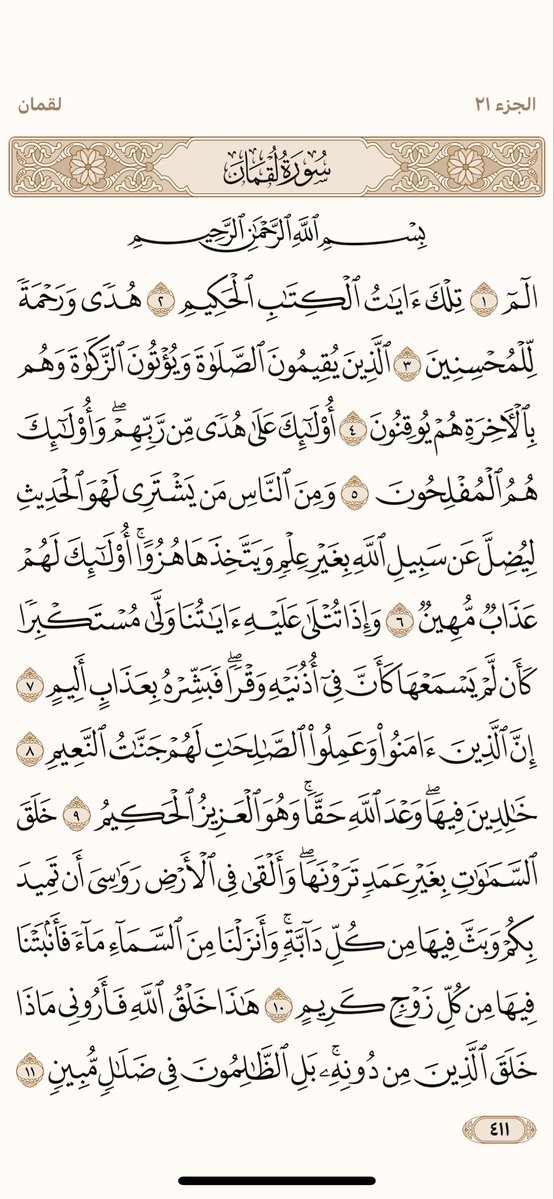 الجزء ٢١
لقمان
سُورَةُ لُقۡمَانَ
بِسۡمِ ٱللَّهِ ٱلرَّحۡمَٰنِ ٱلرَّحِيمِ
الٓمٓ ١ تِلۡكَ ءَايَٰتُ ٱلۡكِتَٰبِ ٱلۡحَكِيمِ ٢ هُدٗى وَرَحۡمَةٗ
لِّلۡمُحۡسِنِينَ ٣ ٱلَّذِينَ يُقِيمُونَ ٱلصَّلَوٰةَ وَيُؤۡتُونَ ٱلزَّكَوٰةَ وَهُم
بِٱلۡأٓخِرَةِ هُمۡ يُوقِنُونَ ٤ أُوْلَٰٓئِكَ عَلَىٰ هُدٗى مِّن رَّبِّهِمۡۖ وَأُوْلَٰٓئِكَ
هُمُ ٱلۡمُفۡلِحُونَ ٥ وَمِنَ ٱلنَّاسِ مَن يَشۡتَرِي لَهۡوَ ٱلۡحَدِيثِ
لِيُضِلَّ عَن سَبِيلِ ٱللَّهِ بِغَيۡرِ عِلۡمٖ وَيَتَّخِذَهَا هُزُوًاۚ أُوْلَٰٓئِكَ لَهُمۡ
عَذَابٞ مُّهِينٞ ٦ وَإِذَا تُتۡلَىٰ عَلَيۡهِ ءَايَٰتُنَا وَلَّىٰ مُسۡتَكۡبِرٗا
كَأَن لَّمۡ يَسۡمَعۡهَا كَأَنَّ فِيٓ أُذُنَيۡهِ وَقۡرٗاۖ فَبَشِّرۡهُ بِعَذَابٍ أَلِيمٍ ٧
إِنَّ ٱلَّذِينَ ءَامَنُواْ وَعَمِلُواْ ٱلصَّٰلِحَٰتِ لَهُمۡ جَنَّٰتُ ٱلنَّعِيمِ ٨
خَٰلِدِينَ فِيهَاۖ وَعۡدَ ٱللَّهِ حَقّٗاۚ وَهُوَ ٱلۡعَزِيزُ ٱلۡحَكِيمُ ٩ خَلَقَ
ٱلسَّمَٰوَٰتِ بِغَيۡرِ عَمَدٖ تَرَوۡنَهَاۖ وَأَلۡقَىٰ فِي ٱلۡأَرۡضِ رَوَٰسِيَ أَن تَمِيدَ
بِكُمۡ وَبَثَّ فِيهَا مِن كُلِّ دَآبَّةٖۚ وَأَنزَلۡنَا مِنَ ٱلسَّمَآءِ مَآءٗ فَأَنۢبَتۡنَا
فِيهَا مِن كُلِّ زَوۡجٖ كَرِيمٍ ١٠ هَٰذَا خَلۡقُ ٱللَّهِ فَأَرُونِي مَاذَا
خَلَقَ ٱلَّذِينَ مِن دُونِهِۦۚ بَلِ ٱلظَّٰلِمُونَ فِي ضَلَٰلٖ مُّبِينٖ ١١
٤١١